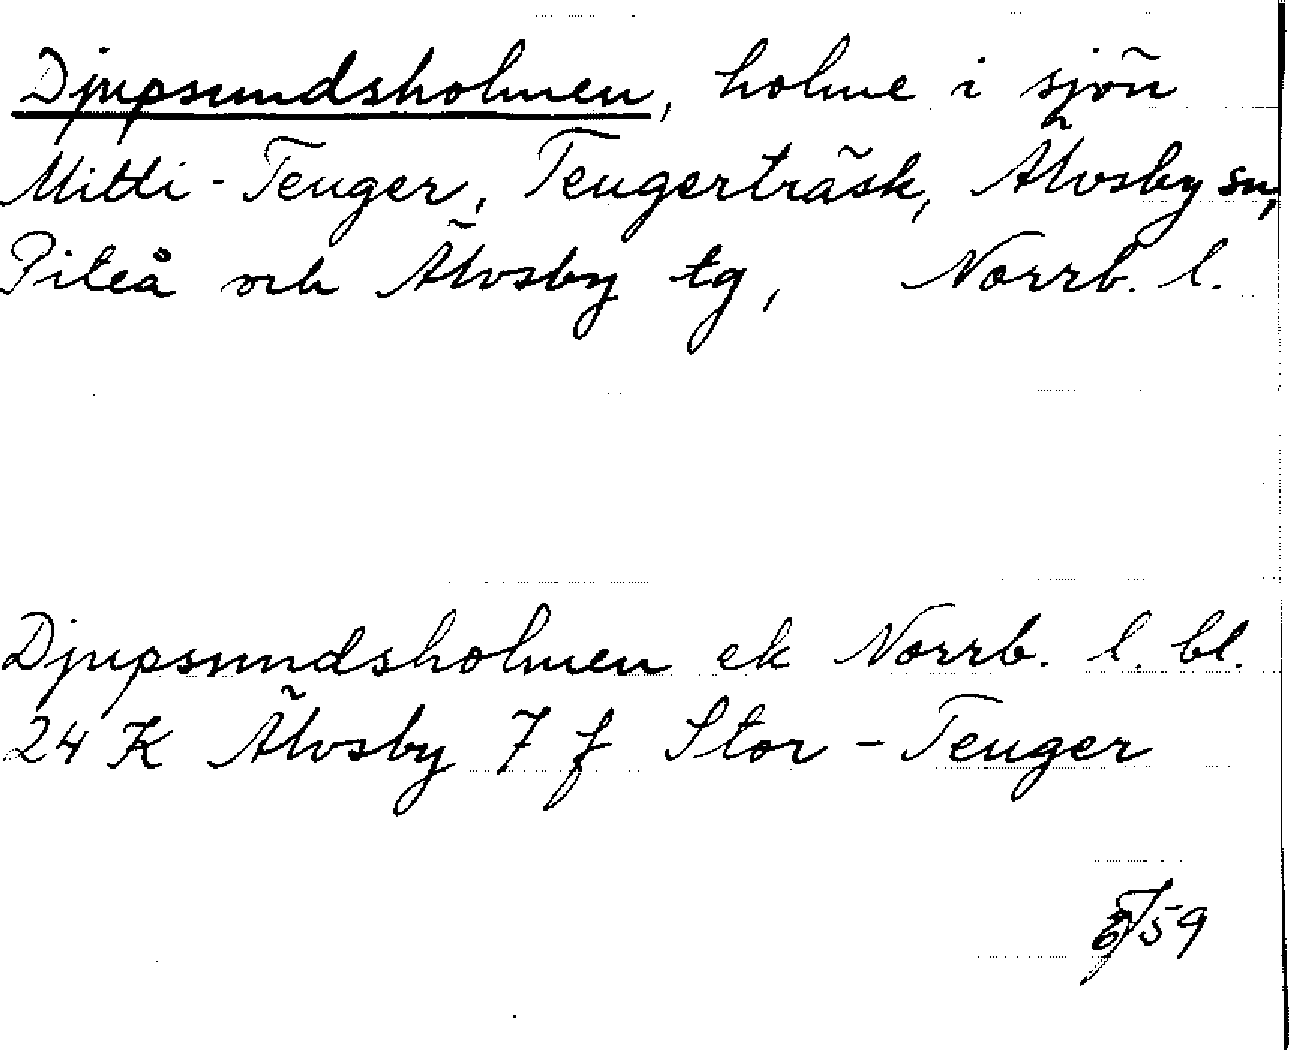 Djupsundsholmen, holme i sjön
Mitti-Teuger, Teugerträsk, Älvsby sn,
Piteå och Älvsby tg, Norrb. l.
Djupsundsholmen ek Norrb. l. bl.
24 K Älvsby 7 f Stor-Teuger
59